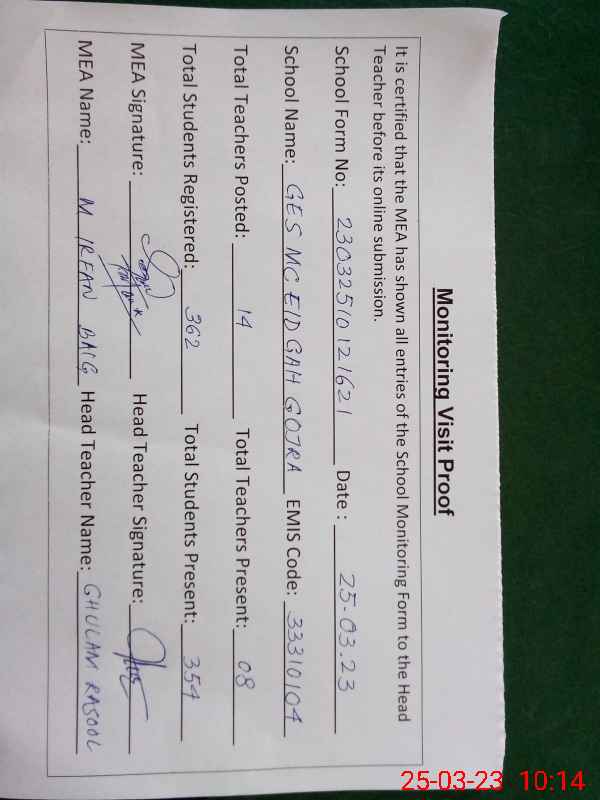 Monitoring Visit Proof
It is certified that the MEA has shown all entries of the School Monitoring Form to the Head
Teacher before its online submission.
School Form No: 23032510121621 Date : 25-03.23
School Name: GES MC EIDGAH GOJRA EMIS Code: 33310104
Total Teachers Posted: 14 Total Teachers Present: 08
Total Students Registered: 362 Total Students Present: 354
MEA Signature: Head Teacher Signature:
MEA Name: M IRFAN BAIG Head Teacher Name: GHULAM RASOOL
25-03-23 10:14